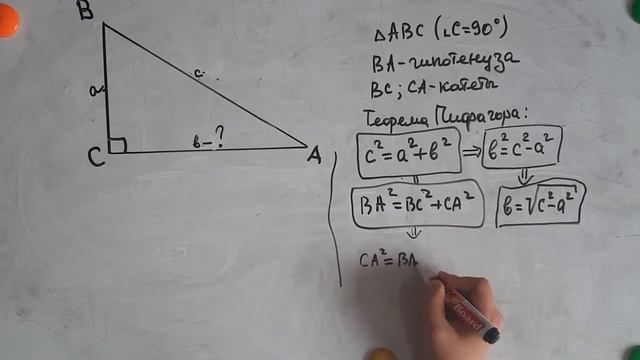 B
a
c
C
в-?
A
△ABC (∟C=90°)
BA-гипотенуза
BC; CA-катеты
Теорема Пифрагора:
c²=a²+в² ⇒ в²=c²-a²
⇓
BA²=BC²+CA²
в=√c²-a²
⇓
CA²=BA